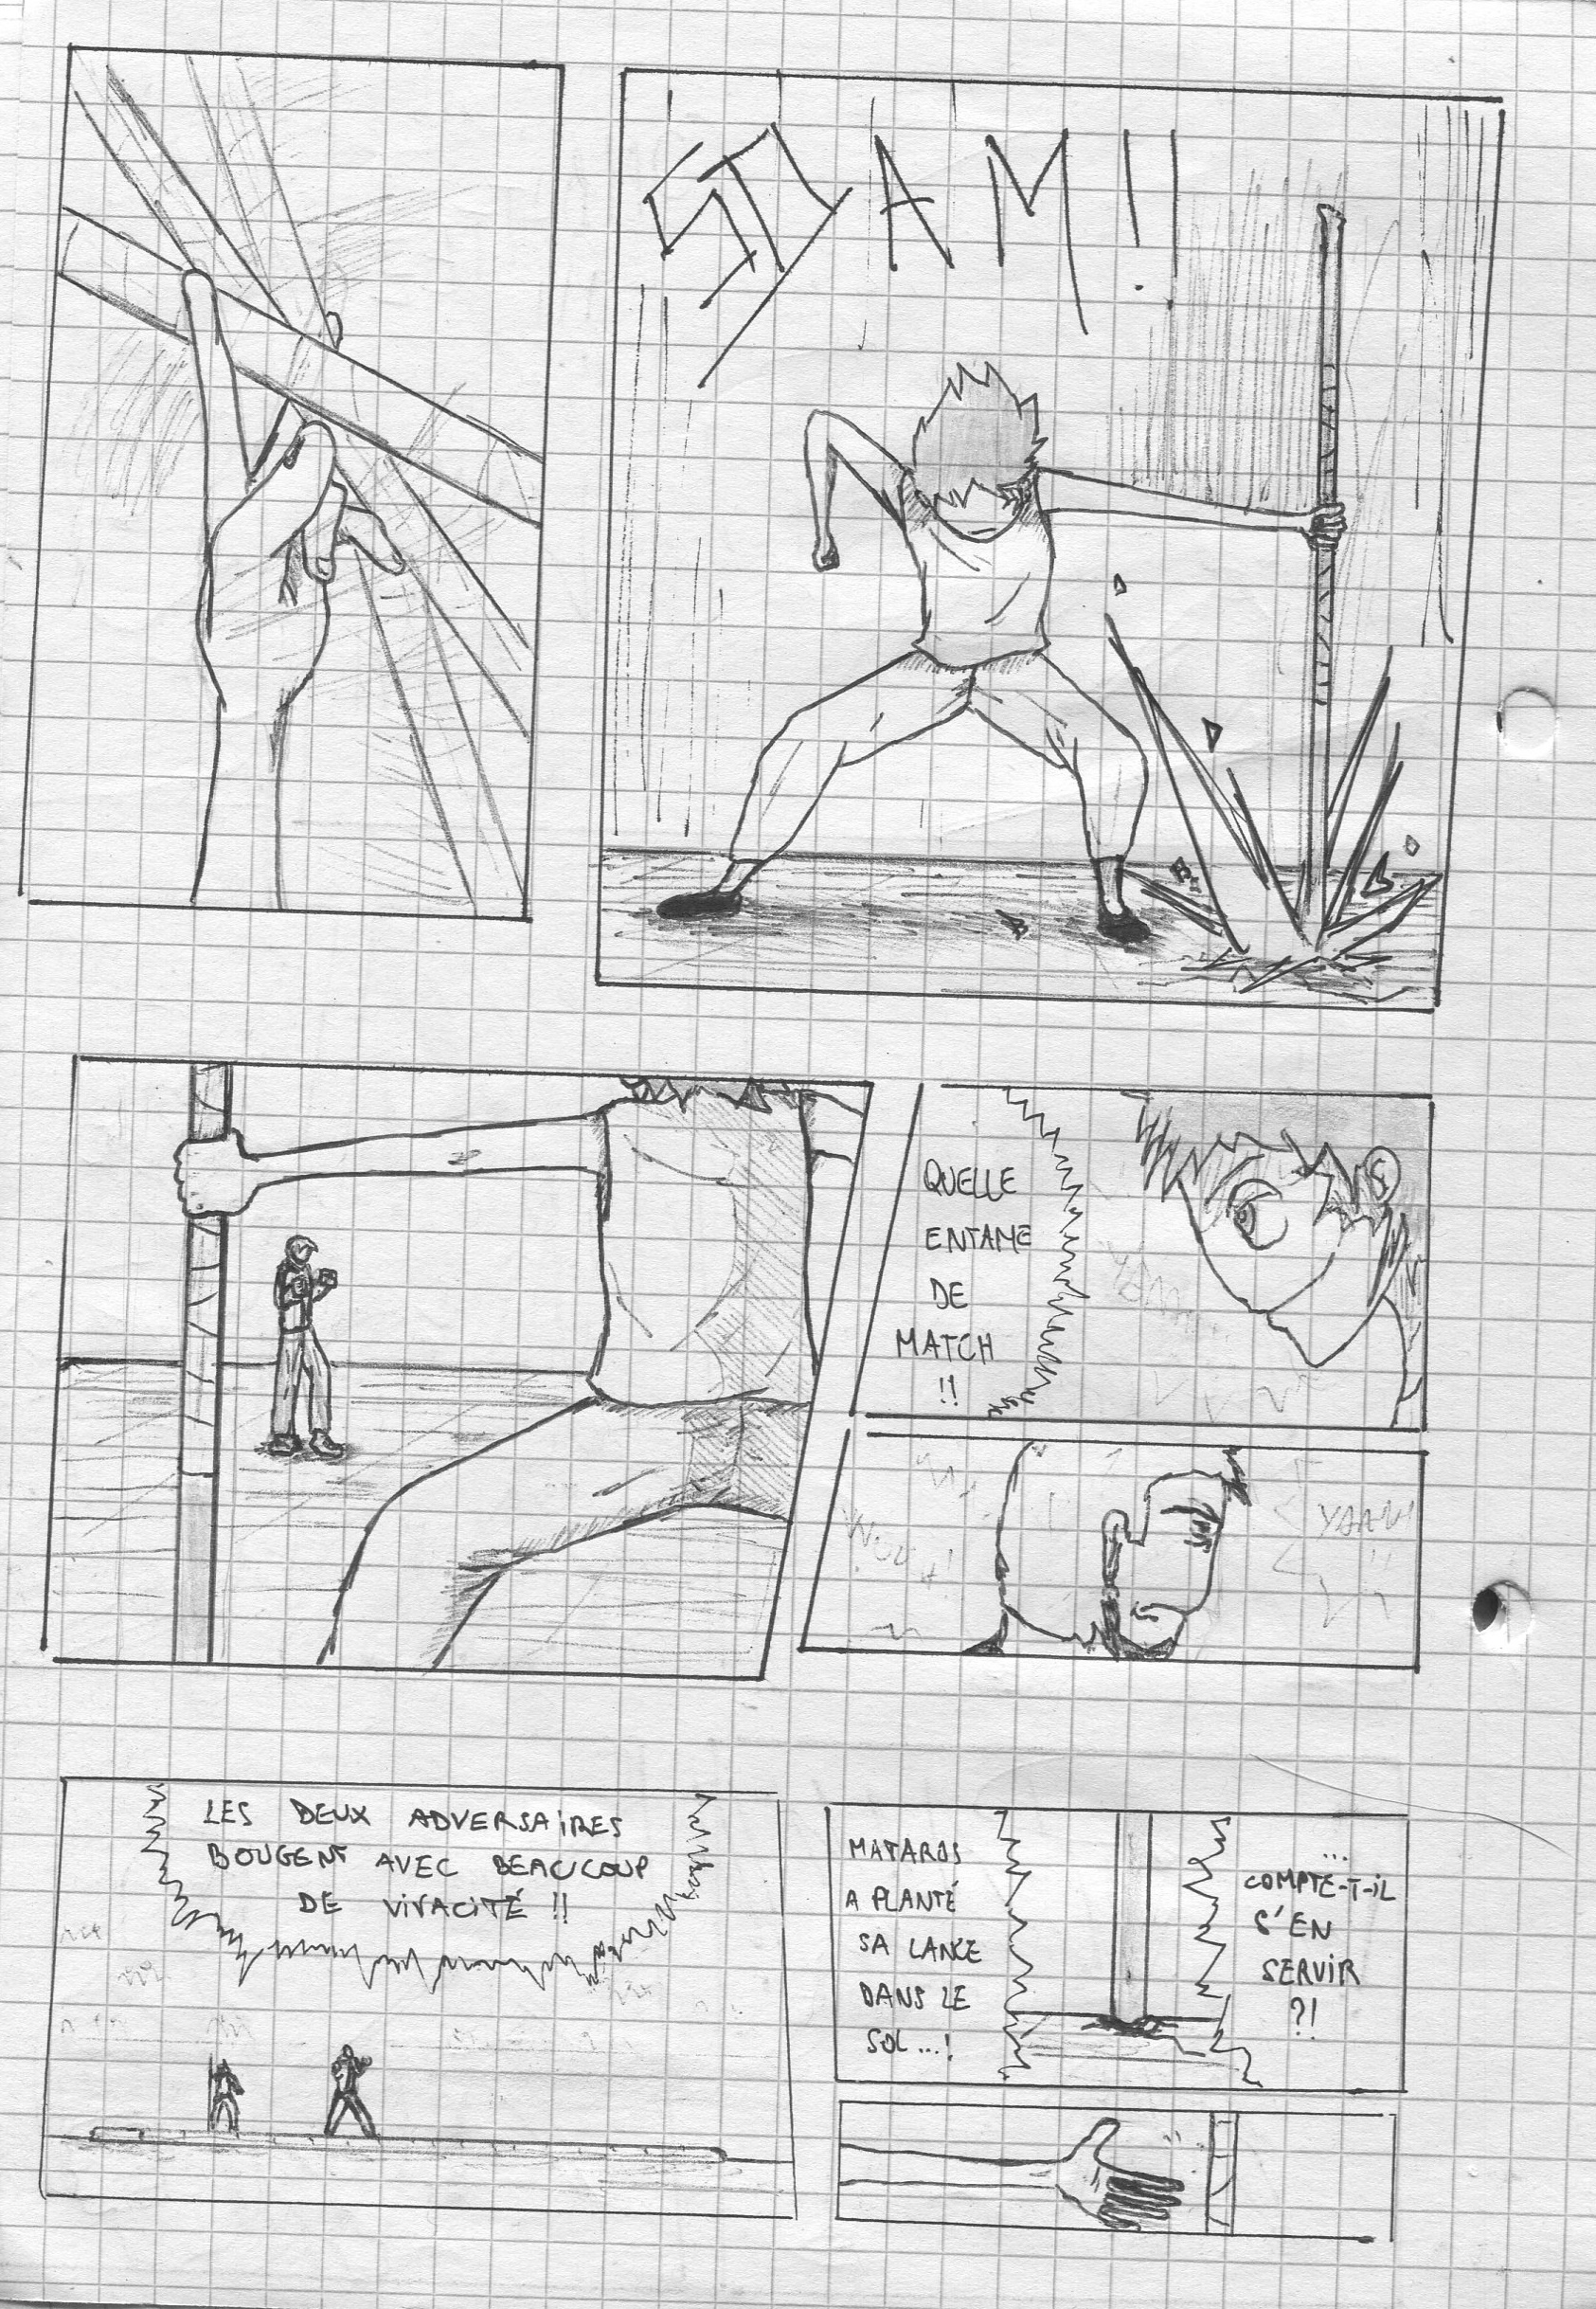 SLAM!!
QUELLE
ENTAME
DE
MATCH
!!
YAAAH
LES DEUX ADVERSAIRES
BOUGENT AVEC BEAUCOUP
DE VIVACITÉ !!
MATAROS
A PLANTÉ
SA LANCE
DANS LE
SOL...!
...
COMPTE-T-IL
S'EN
SERVIR
?!